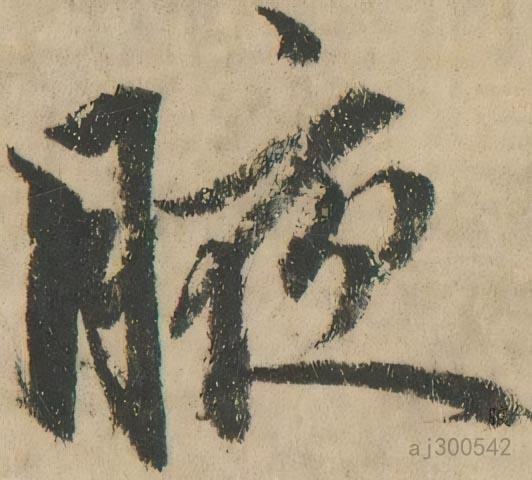 腋
aj300542